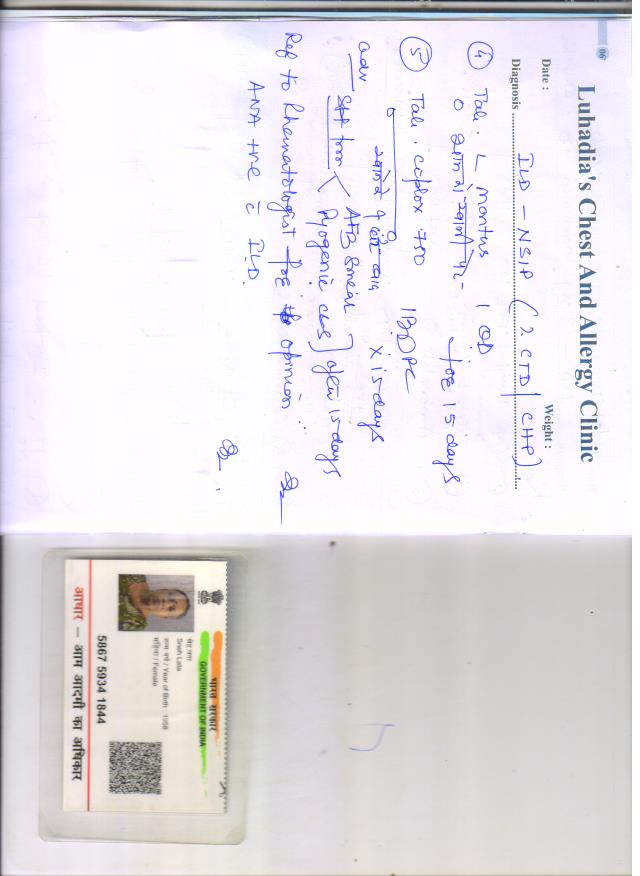 06
Luhadia's Chest And Allergy Clinic
Date :
Weight :
Diagnosis ILD - NSIP ( ? CTD / CHP ).
④ Tab. L montus 1 OD
for 15 days
⑤ Tab. 750 1 BD PC
x 15 days
adv
AFB smear
Pyogenic c/s after 15 days
Ref to Rheumatologist for opinion
ANA +ve c̄ ILD.
भारत सरकार
GOVERNMENT OF INDIA
स्नेह लता
Sneh Lata
जन्म वर्ष / Year of Birth : 1956
महिला / Female
5867 5934 1844
आधार — आम आदमी का अधिकार